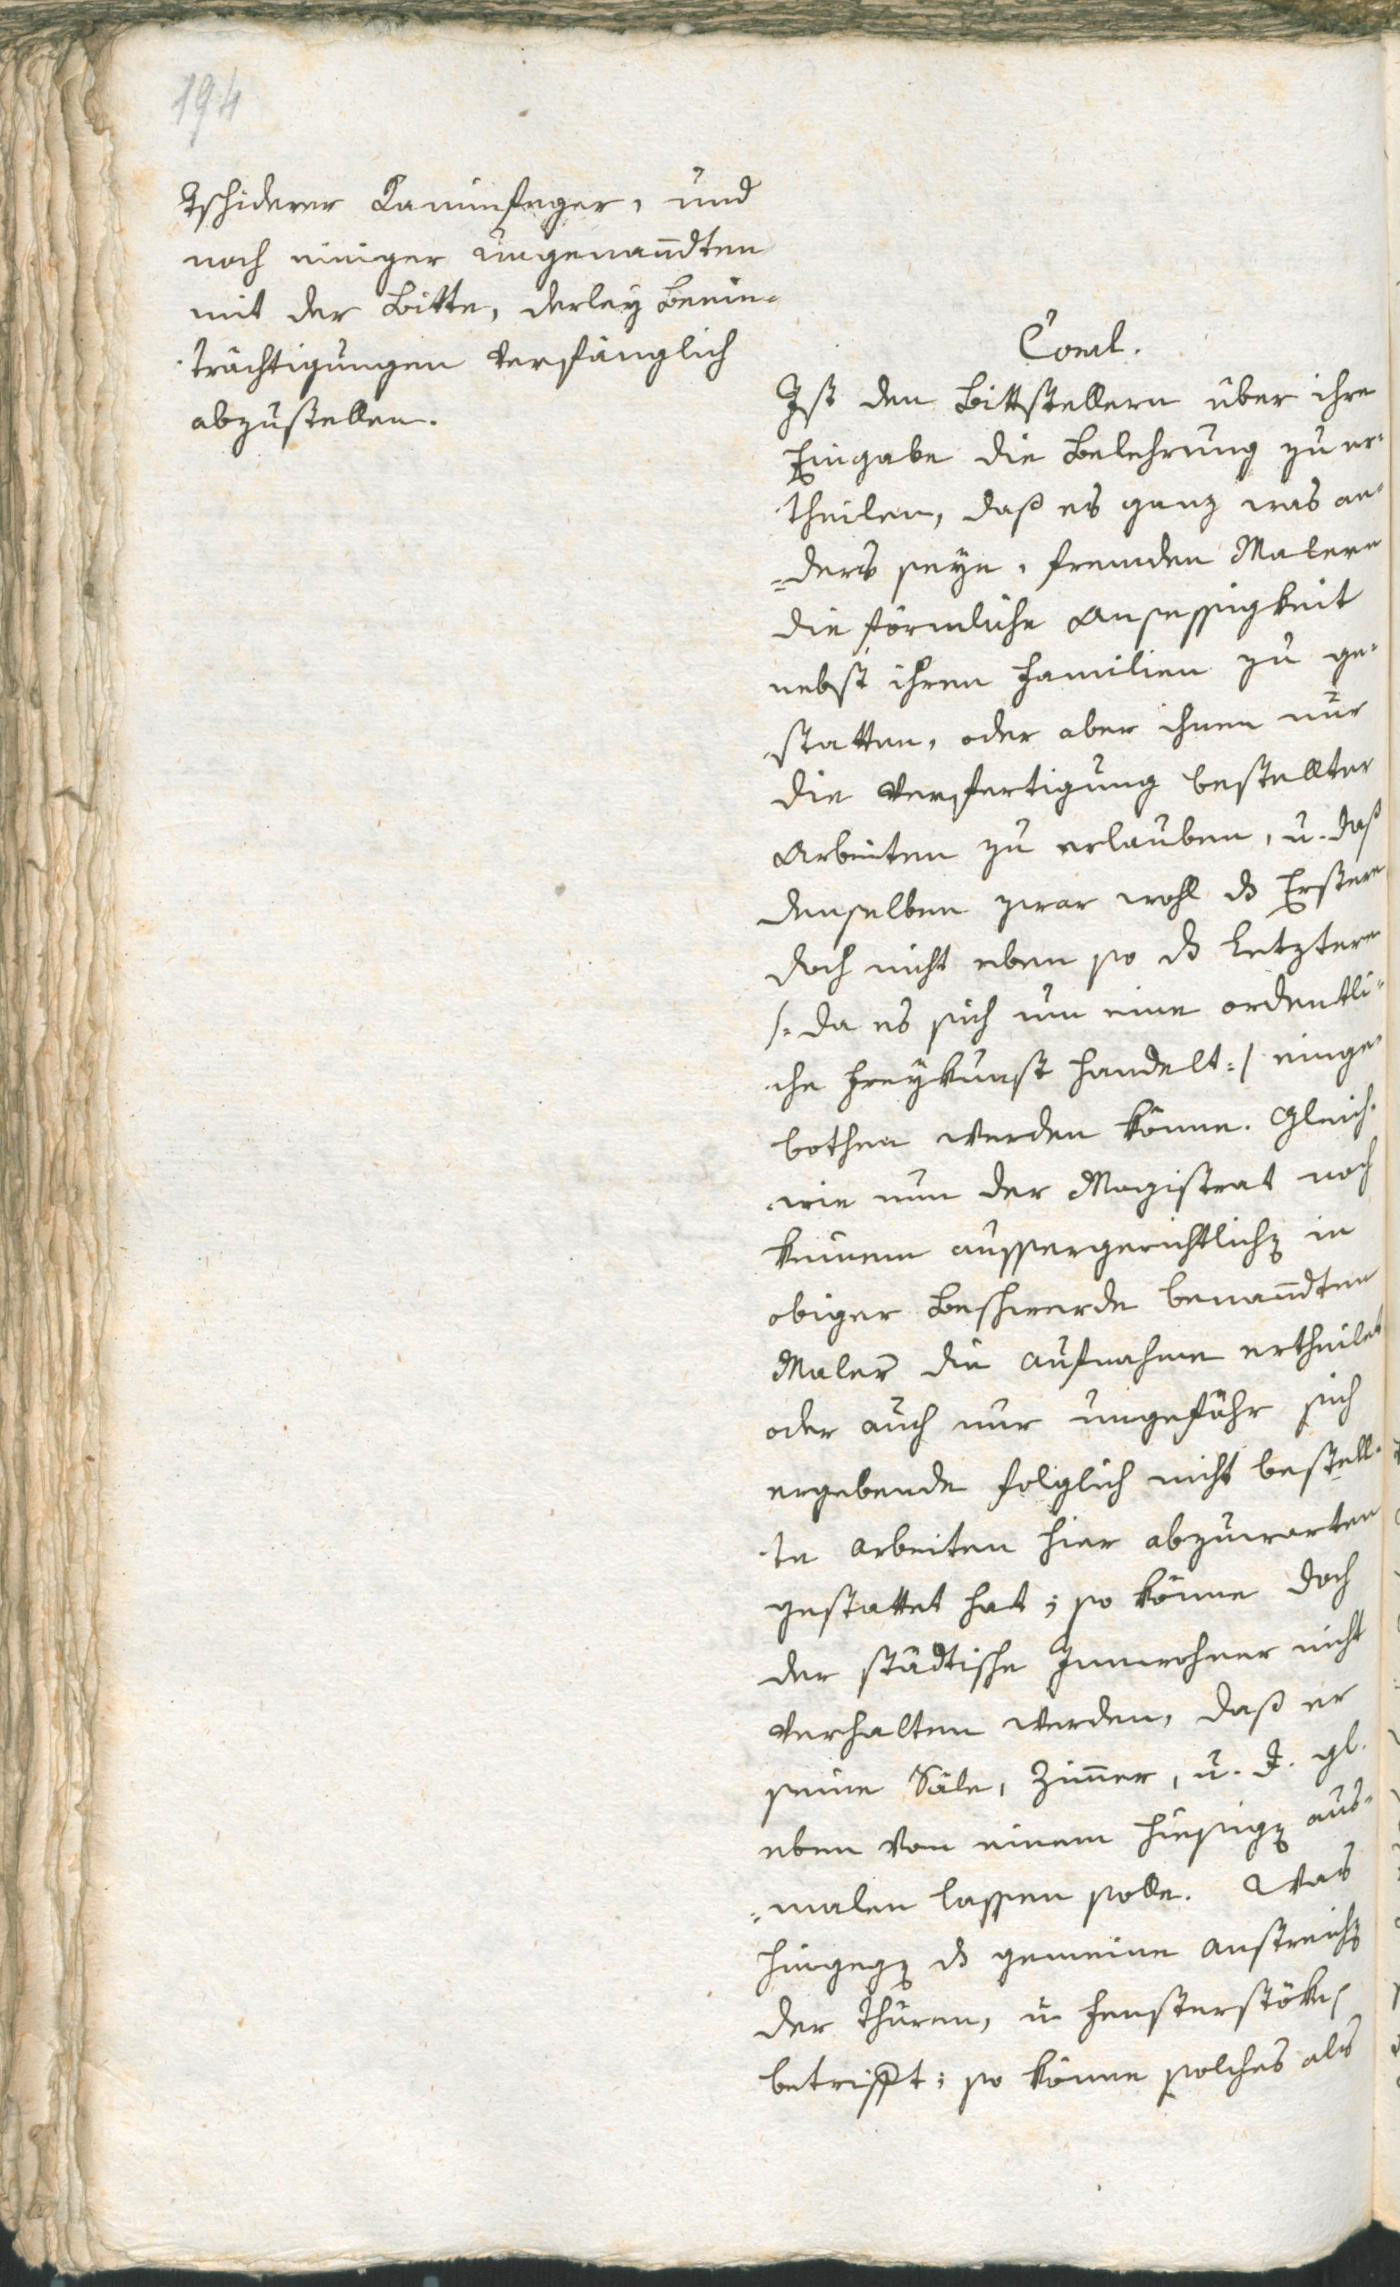 194
Tschiderer Kaminfeger, und
noch einiger ungenan̄dten
mit der Bitte, derley Beein-
trächtigungen verfänglich
abzustellen.
Concl.
Ist den Bittstellern über ihre
Eingabe die Belehrung zu er-
theilen, daß es ganz was an-
ders seÿe, fremden Malern
die förmliche Ansessigkeit
nebst ihren Familien zu ge-
statten, oder aber ihnen nur
die Verfertigung bestellter
Arbeiten zu erlauben, u. daß
denselben zwar wohl ds Erstere
doch nicht eben so ds Letztere
/: da es sich um eine ordentli-
che Freÿkunst handelt :/ einge-
bothen werden könne. Gleich-
wie nun der Magistrat noch
keinem aussergerichtlichen in
obiger Beschwerde benan̄dten
Maler die Aufnahme ertheilet
oder auch nur ungefähr sich
ergebende folglich nicht bestell-
te Arbeiten hier abzuwarten
gestattet hat; so könne doch
der städtische Innwohner nicht
verhalten werden, daß er
seine Säle, Zim̄er, u. d. gl.
eben von einem hiesigen aus-
malen lassen solle. Was
hingegen ds gemeine Anstreichen
der Thüren, u Fensterstöken
betrifft; so könne solches als